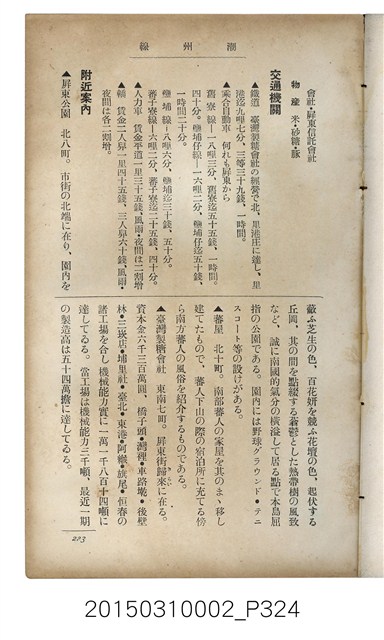 潮州線
會社・屏東信託會社
物産 米・砂糖・豚
交通機關
▲鐵道 臺灣製糖會社の經營で北、里港庄に達し、里
港迄九哩七分、三等三十九錢、一時間。
▲乘合自動車 何れも屏東から
舊寮線―一八哩三分、舊寮迄五十五錢、一時間。
四十分。鹽埔仔線―一六哩二分、鹽埔仔迄五十錢、
一時間二十分。
鹽埔線―八哩六分、鹽埔迄三十錢、五十分。
蕃子寮線―六哩二分、蕃子寮迄二十五錢、四十分。
▲人力車 賃金平道一里三十五錢、風雨・夜間は二割增
▲轎 賃金二人舁一里四十五錢、三人舁六十錢、風雨・
夜間は各二割增。
附近案内
▲屏東公園 北八町。市街の北端に在り、園内を
蔽ふ芝生の色、百花姸を競ふ花壇の色、起伏する
丘岡、其の間を點綴する蒼鬱とした熱帶樹の風致
など、誠に南國的氣分の橫溢して居る點で本島屈
指の公園である。園内には野球グラウンド・テニ
スコート等の設けがある。
▲蕃屋 北十町。南部蕃人の家屋を其のまゝ移し
建てたもので、蕃人下山の際の宿泊所に充てる傍
ら南方蕃人の風俗を紹介するものである。
▲臺灣製糖會社 東南七町。屏東街歸來に在る。
資本金六千三百萬圓、橋子頭・灣裡・車路墘・後壁
林・三崁店・埔里社・臺北・東港・阿緱・旗尾・恒春の
諸工場を合し機械能力實に一萬一千八百十四噸に
達してゐる。當工場は機械能力三千噸、最近一期
の製造高は五十四萬擔に達してゐる。
203
20150310002_P324